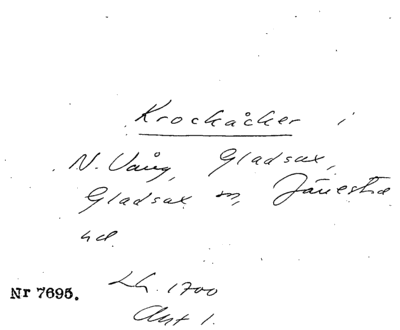 Krockåcker i
N. Vång, Gladsax,
Gladsax sn, Järrestad
hd
Nr 7695. Lh. 1700
Akt 1.